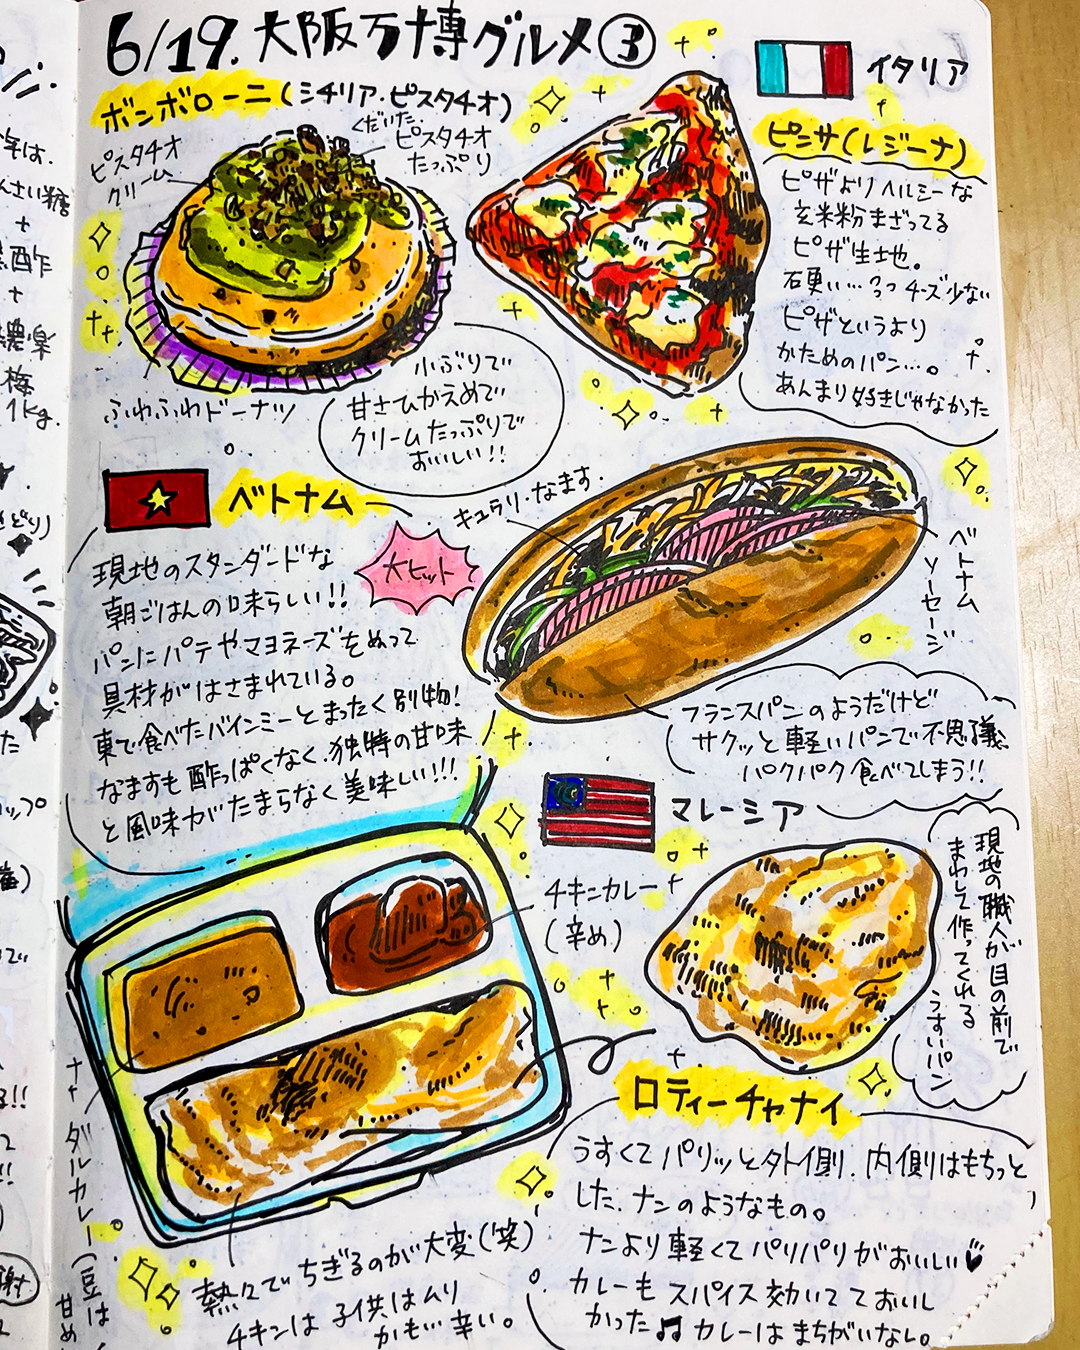 6/19. 大阪万博グルメ③
ボンボローニ(シチリア・ピスタチオ)
ピスタチオ
クリーム
くだいた
ピスタチオ
たっぷり
ふわふわドーナツ
小ぶりで
甘さひかえめで
クリームたっぷりで
おいしい!!
イタリア
ピンサ(レジーナ)
ピザよりヘルシーな
玄米粉まざってる
ピザ生地。
硬い…??チーズ少ない
ピザというより
かためのパン…。
あんまり好きじゃなかった
ベトナム
現地のスタンダードな
朝ごはんの味らしい!!
パンにパテやマヨネーズをぬって
具材がはさまれている。
東で食べたバインミーとまったく別物!
なますも酢っぱくなく、独特の甘味
と風味がたまらなく美味しい!!!
大ヒット
キュウリ・なます・
ベトナム
ソーセージ
フランスパンのようだけど
サクッと軽いパンで不思議
パクパク食べてしまう!!
マレーシア
チキンカレー
(辛め)
現地の職人が目の前で
まわして作ってくれる
うすいパン
ロティーチャナイ
うすくてパリッと外側、内側はもちっと
した、ナンのようなもの。
ナンより軽くてパリパリがおいしい
カレーもスパイス効いてておいし
かった♫カレーはまちがいなし。
ダルカレー(豆は
甘め
熱々でちぎるのが大変(笑)
チキンは子供はムリ
かも…辛い。
年は、
んさい糖
+
酢
+
濃
梅
1kg.